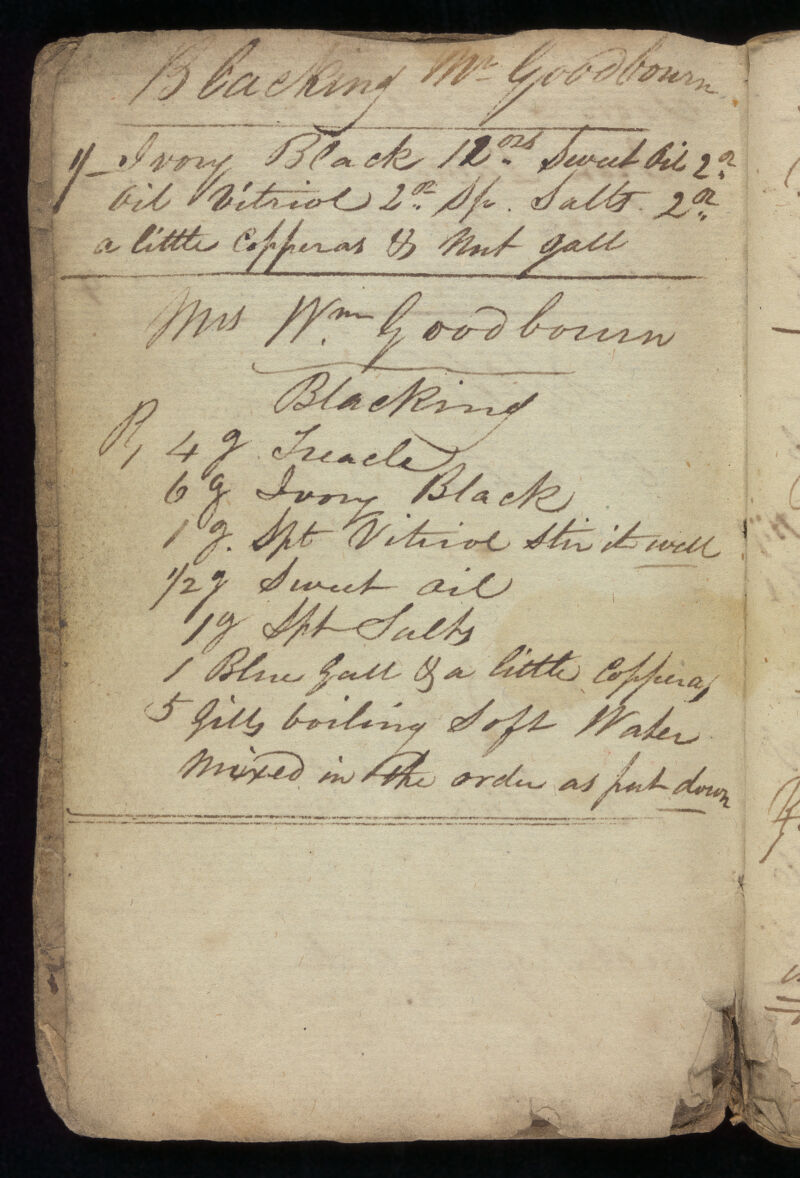 Blacking Mr Goodbourn
1/- Ivory Black 12 ozs Sweet Oil 2 oz
Oil Vitriol 2 oz Sp. Salts. 2 oz
a little Copperas & Nut gall
Mrs Wm Goodbourn
Blacking
4 g Treacle
6 g Ivory Black
1 g. Spt Vitriol stir it well
1/2 g Sweet oil
1 g Spt Salts
1 Blue Gall & a little Copperas
5 Gills boiling Soft Water
Mixed in the order as put down